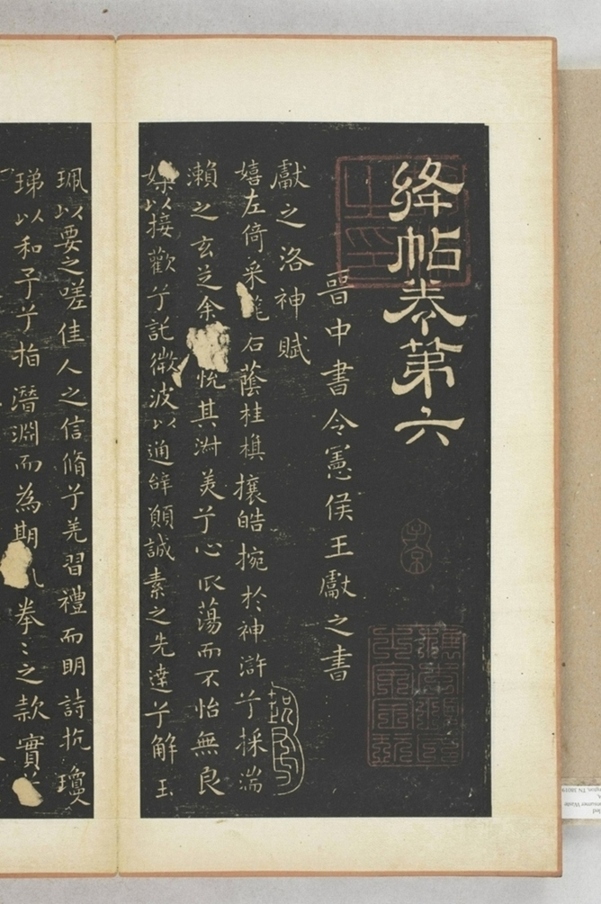 絳帖卷第六
晉中書令憲侯王獻之書
獻之洛神賦
嬉左倚采旄右蔭桂旗攘皓捥於神滸兮採湍
瀨之玄芝余悅其淑美兮心振蕩而不怡無良
媒以接歡兮託微波以通辭願誠素之先達兮解玉
珮以要之嗟佳人之信脩兮羌習禮而明詩抗瓊
琫以和予兮指潛淵而為期拳〻之款實